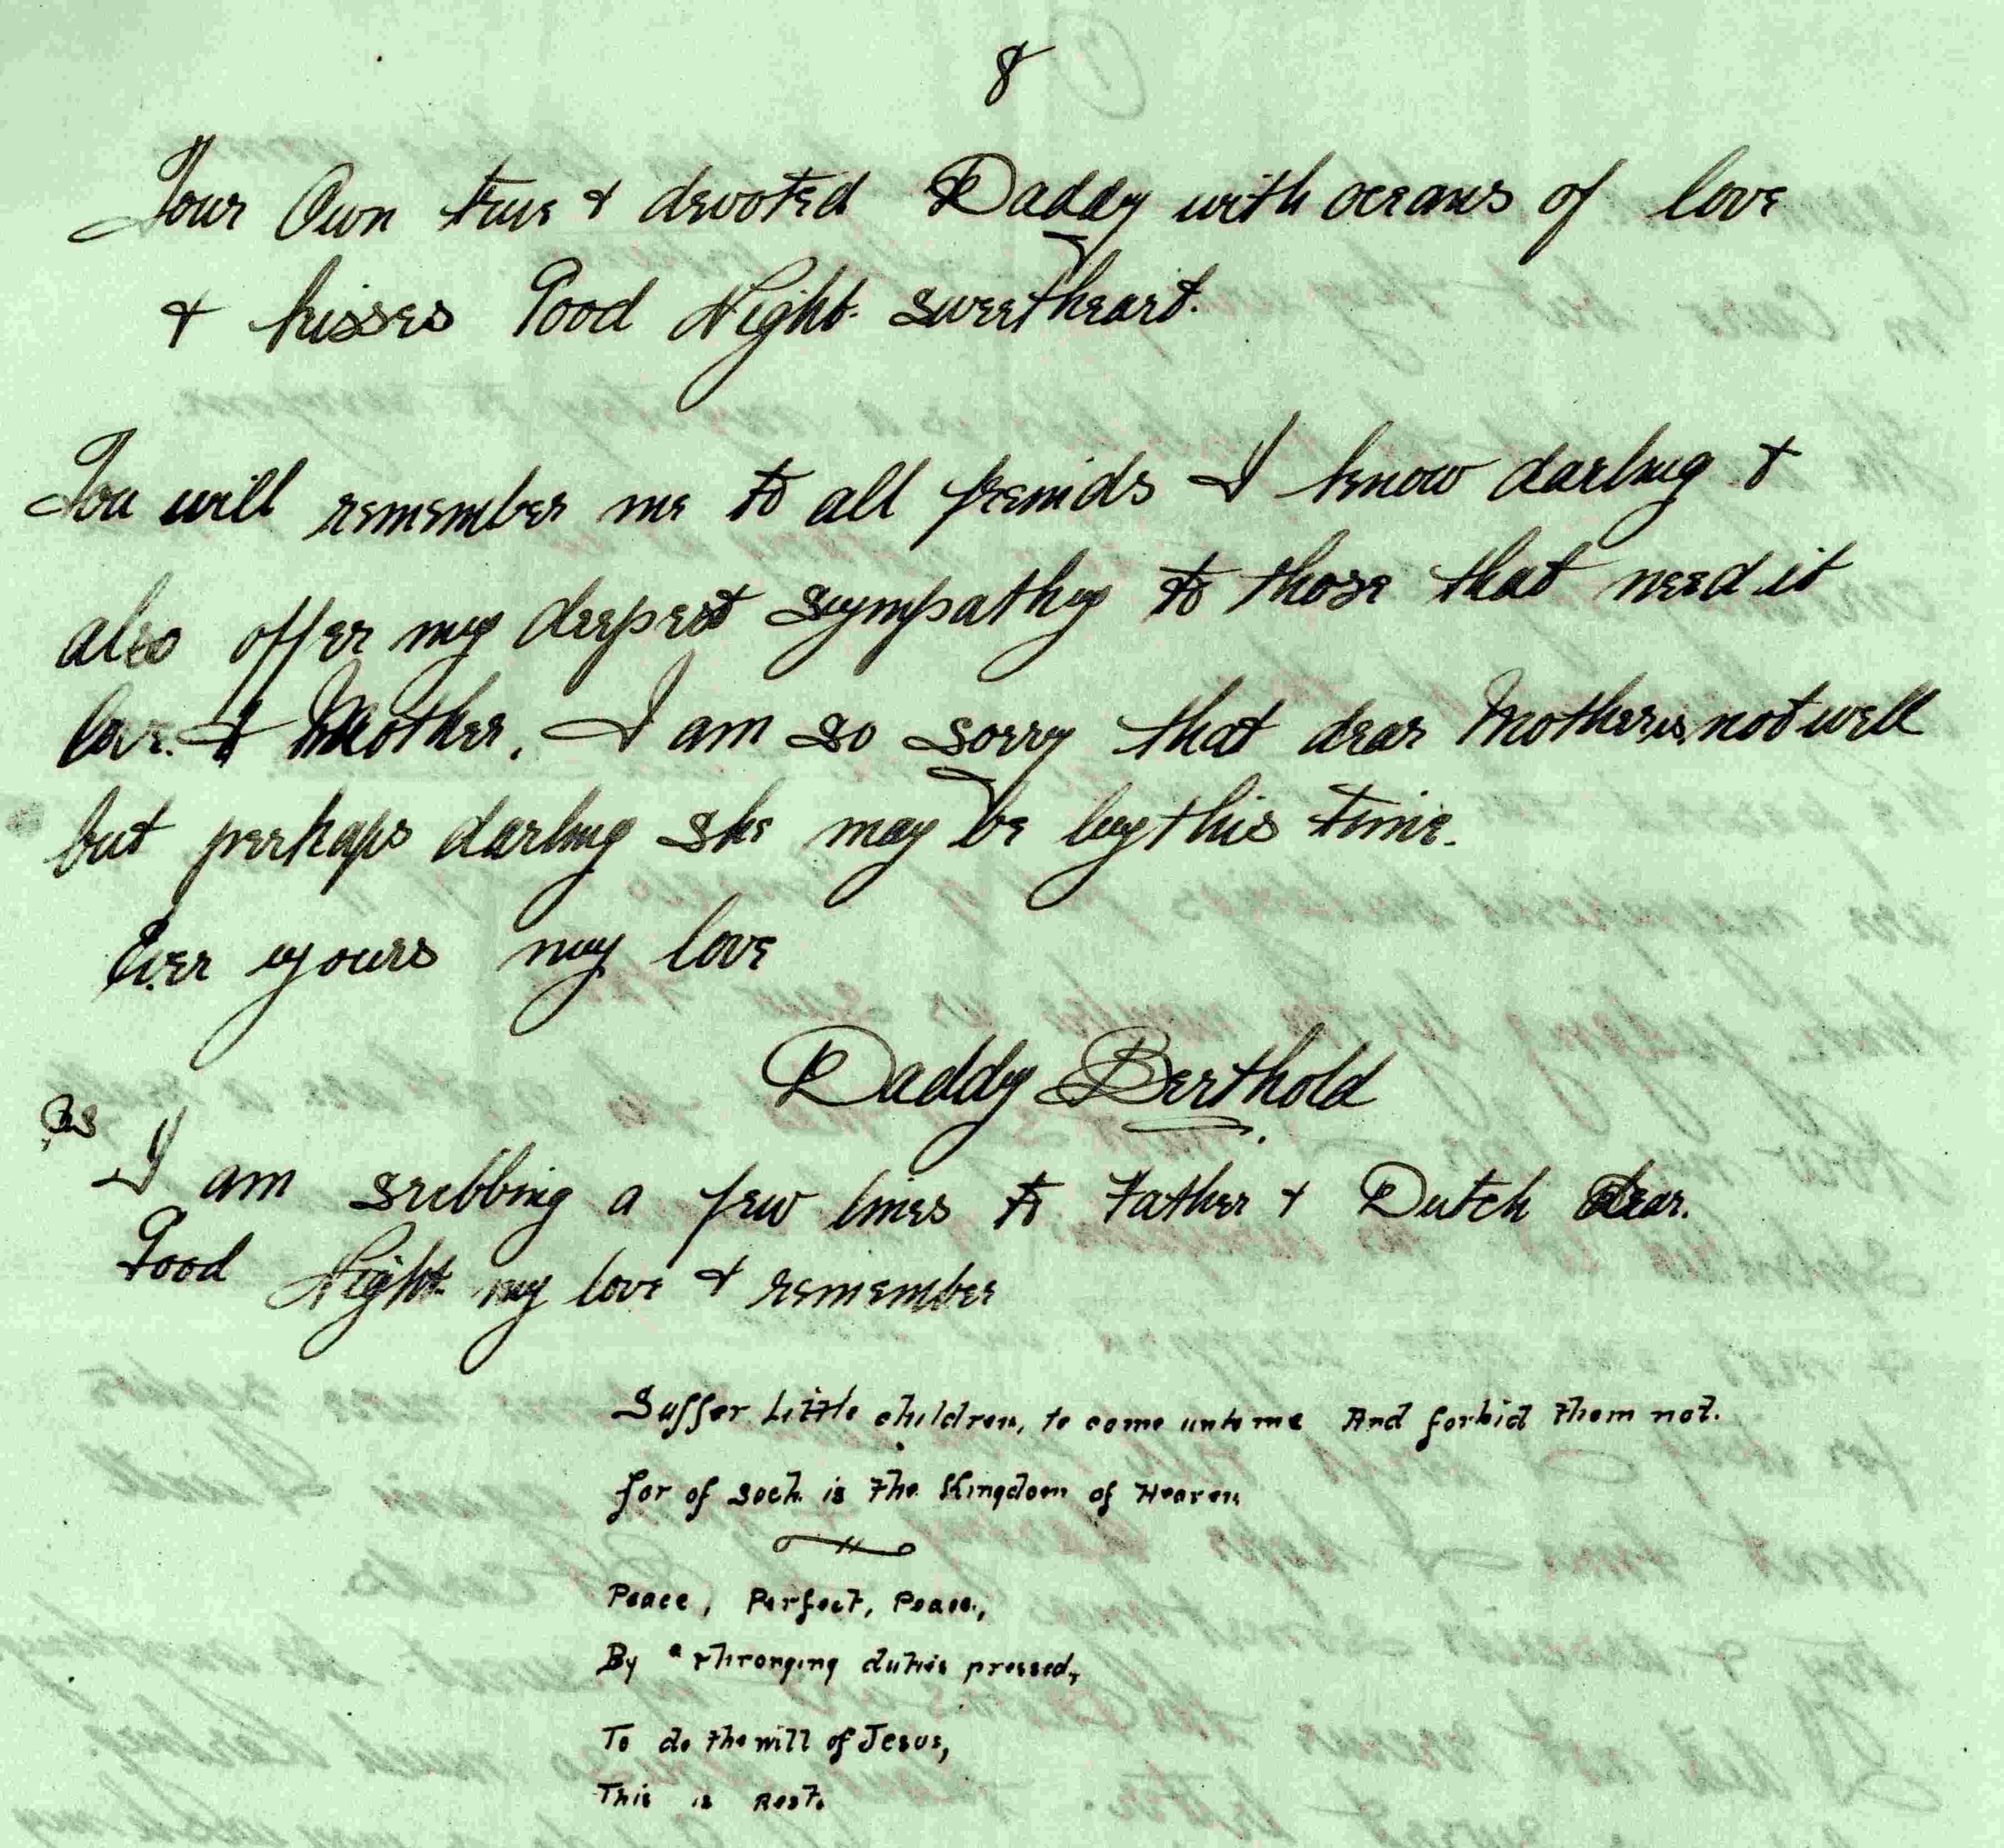 8
Your Own true & devoted Daddy with oceans of love
& kisses Good Night. sweetheart.
You will remember me to all freinds I know darling &
also offer my deepest sympathy to those that need it
love. & Mother. I am so sorry that dear Mother is not well
but perhaps darling she may be by this time.
Ever yours my love
Daddy Berthold
PS
I am sribbing a few lines to Father & Dutch dear.
Good Night my love & remember
Suffer Little children, to come unto me And forbid them not.
for of soch is the Kingdom of Heaven
Peace, Perfect, Peace,
By a thronging duties pressed,
To do the will of Jesus,
This is Rest.